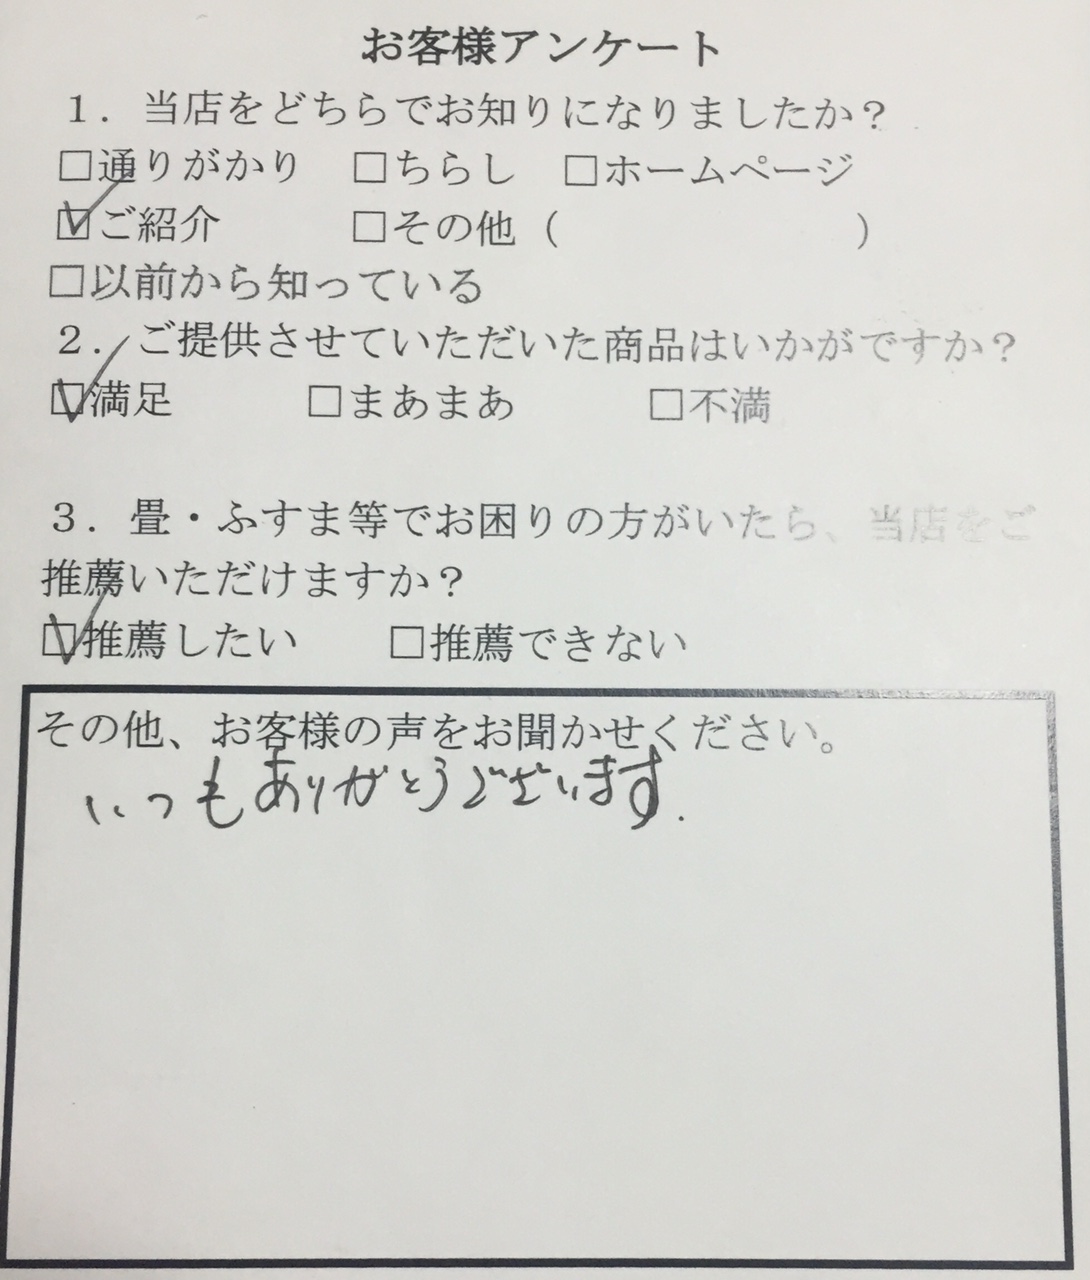 お客様アンケート
１．当店をどちらでお知りになりましたか？
□通りがかり　□ちらし　□ホームページ
☑ご紹介　　　□その他（　　　　　　　）
□以前から知っている
２．ご提供させていただいた商品はいかがですか？
☑満足　　　□まあまあ　　　□不満
３．畳・ふすま等でお困りの方がいたら、当店をご
推薦いただけますか？
☑推薦したい　　□推薦できない
その他、お客様の声をお聞かせください。
いつもありがとうございます.